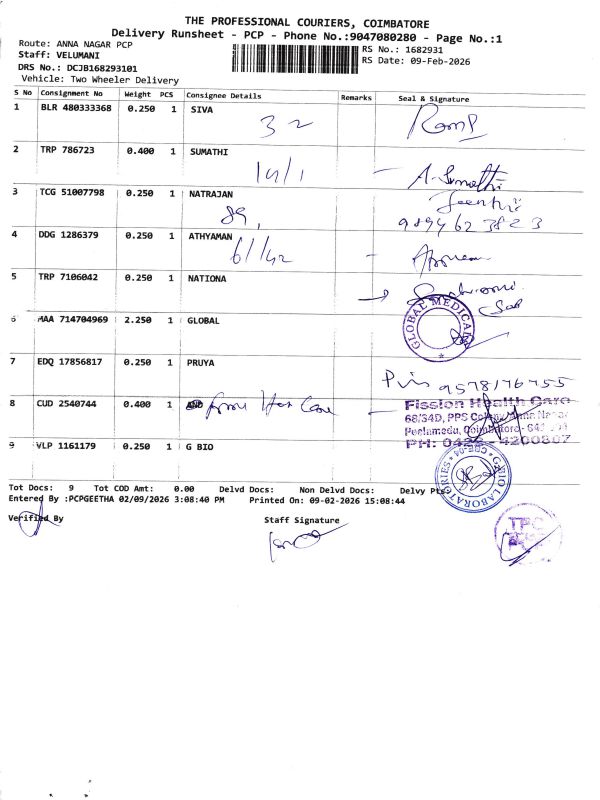 THE PROFESSIONAL COURIERS, COIMBATORE
Delivery Runsheet - PCP - Phone No.:9047080280 - Page No.:1
Route: ANNA NAGAR PCP
RS No.: 1682931
Staff: VELUMANI
RS Date: 09-Feb-2026
DRS No.: DCJB168293101
Vehicle: Two Wheeler Delivery
S No Consignment No Weight PCS Consignee Details Remarks Seal & Signature
1 BLR 480333368 0.250 1 SIVA
32
2 TRP 786723 0.400 1 SUMATHI
A. Sumathi
3 TCG 51007798 0.250 1 NATRAJAN
89,
9894623823
4 DDG 1286379 0.250 1 ATHYAMAN
61/42
5 TRP 7106042 0.250 1 NATIONA
6 MAA 714704969 2.250 1 GLOBAL
GLOBAL MEDICAL
7 EDQ 17856817 0.250 1 PRUYA
9578176755
8 CUD 2540744 0.400 1
Fission Health Care
68/34D, PPS Colony, Anna Nagar
Peelamedu, Coimbatore - 641
PH: 0422 - 4200807
9 VLP 1161179 0.250 1 G BIO
LABORATORIES
Tot Docs: 9 Tot COD Amt: 0.00 Delvd Docs: Non Delvd Docs: Delvy Pts:
Entered By :PCPGEETHA 02/09/2026 3:08:40 PM Printed On: 09-02-2026 15:08:44
Verified By
Staff Signature
TPC